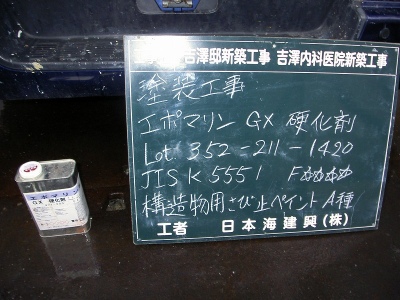 吉澤邸新築工事 吉澤内科医院新築工事
塗装工事
エポマリン GX 硬化剤
Lot 352-211-1420
JIS K 5551 F☆☆☆☆
構造物用さび止ペイント A種
工者 日本海建興(株)
エポマリン
GX 硬化剤